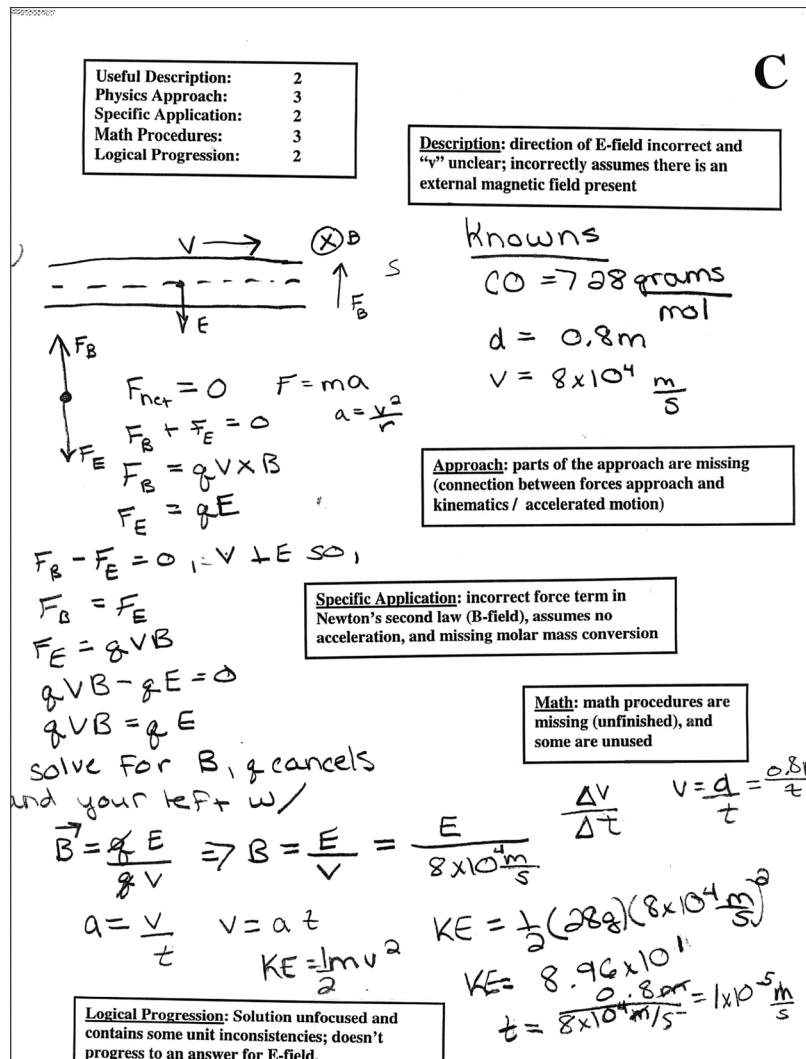 C
Useful Description: 2
Physics Approach: 3
Specific Application: 2
Math Procedures: 3
Logical Progression: 2
Description: direction of E-field incorrect and
"v" unclear; incorrectly assumes there is an
external magnetic field present
V → ⊗ B
S
F_B
E
F_B
F_E
Knowns
CO => 28 grams/mol
d = 0.8m
v = 8x10^4 m/s
F_net = 0 F = ma
a = v^2/r
F_B + F_E = 0
F_B = qV x B
F_E = qE
Approach: parts of the approach are missing
(connection between forces approach and
kinematics / accelerated motion)
F_B - F_E = 0, V ⊥ E so,
F_B = F_E
F_E = qVB
qVB - qE = 0
qVB = qE
Specific Application: incorrect force term in
Newton's second law (B-field), assumes no
acceleration, and missing molar mass conversion
Math: math procedures are
missing (unfinished), and
some are unused
solve for B, q cancels
and your left w/
B⃗ = qE/qV => B = E/V = E/(8x10^4 m/s)
ΔV/Δt v = d/t = 0.8m/t
a = v/t v = at
KE = 1/2 mv^2
KE = 1/2 (28g)(8x10^4 m/s)^2
KE = 8.96x10^11
t = 0.8m/(8x10^4 m/s) = 1x10^-5 m/s
Logical Progression: Solution unfocused and
contains some unit inconsistencies; doesn't
progress to an answer for E-field.